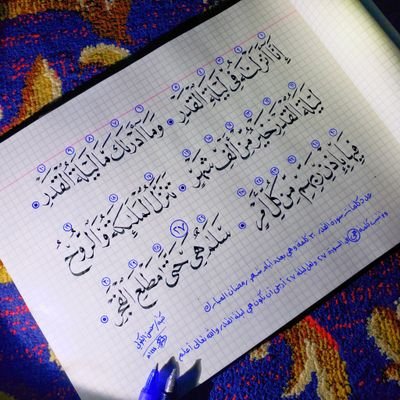 إِنَّا أَنزَلْنَاهُ فِي لَيْلَةِ الْقَدْرِ وَمَا أَدْرَاكَ مَا لَيْلَةُ الْقَدْرِ
لَيْلَةُ الْقَدْرِ خَيْرٌ مِّنْ أَلْفِ شَهْرٍ تَنَزَّلُ الْمَلَٰئِكَةُ وَالرُّوحُ
فِيهَا بِإِذْنِ رَبِّهِم مِّن كُلِّ أَمْرٍ سَلَٰمٌ هِيَ حَتَّىٰ مَطْلَعِ الْفَجْرِ
٢٧
عدد كلمات سورة القدر ٣٠ كلمة وهي بعدد أيام شهر رمضان المبارك
كلمة (هي) في السورة ٢٧ ولعل ليلة ٢٧ أرجى أن تكون هي ليلة القدر والله تعالى أعلم